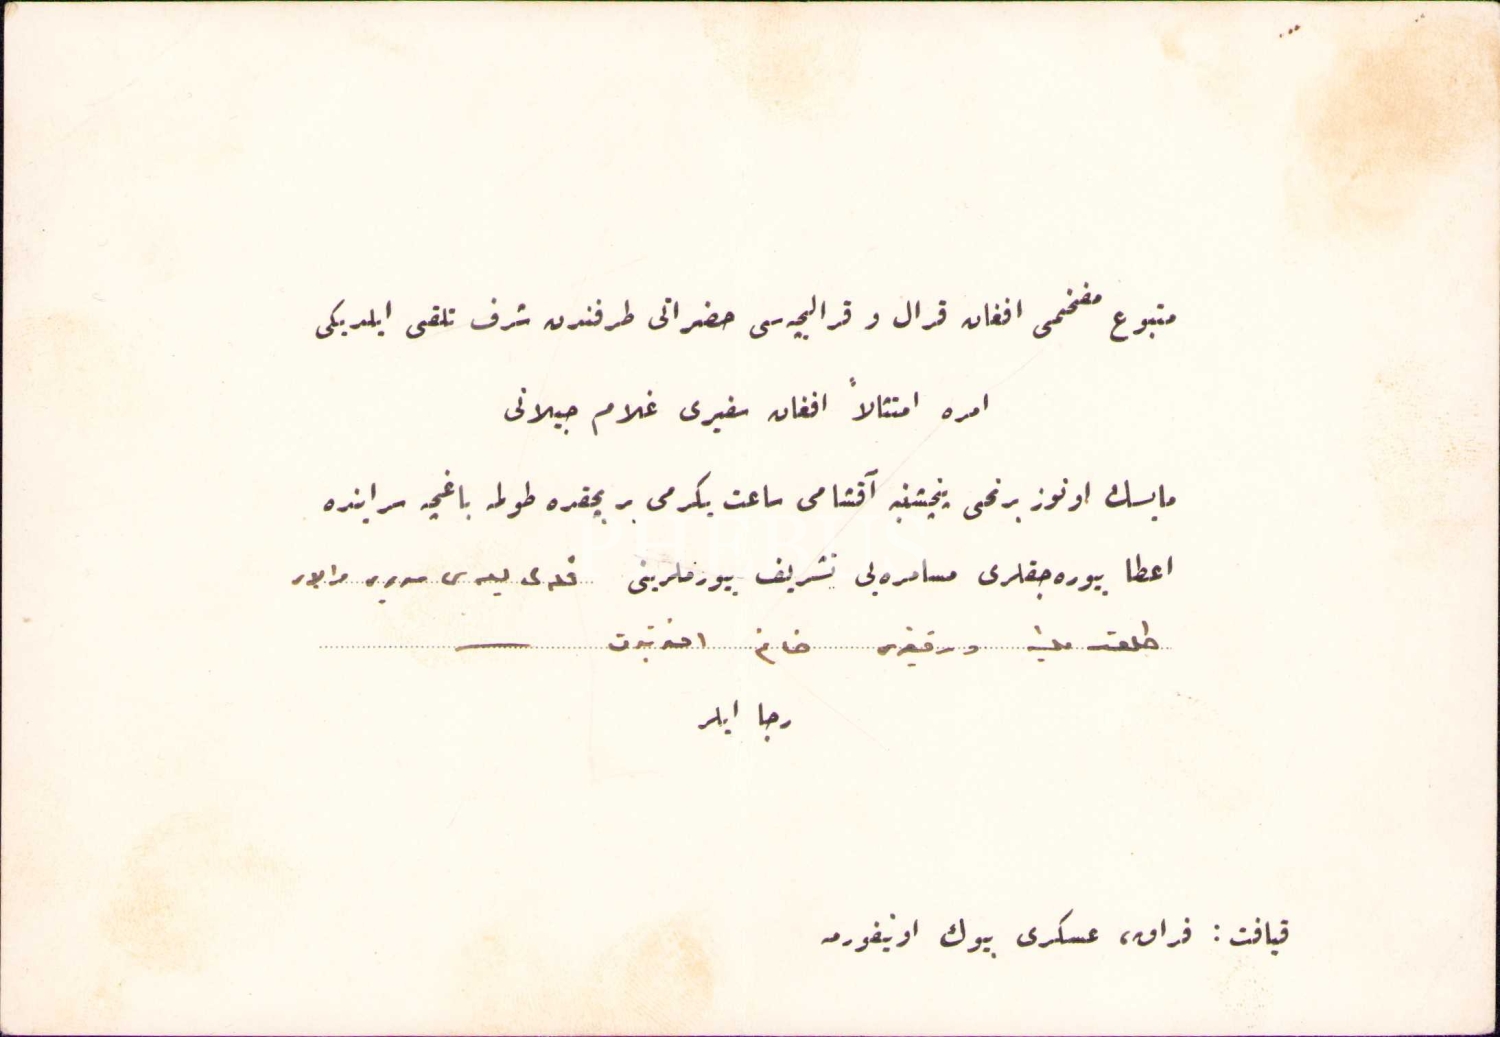 متبوع مفخمی افغان قرال و قرالیچه‌سی حضراتی طرفندن شرف تلقی ایلدیکی
امره امتثالاً افغان سفیری غلام جیلانی
مایسك اوتوز برنجی پنجشنبه آقشامی ساعت یكرمی بر بچقده طولمه باغچه سراینده
اعطا بیوره‌جقلری مسامره‌یی تشریف بیورملرینی
طلعت و رفیقه‌سی خانم
رجا ایلر
قیافت : فراق، عسكری بیوك اونیفورمه
PHEBUS